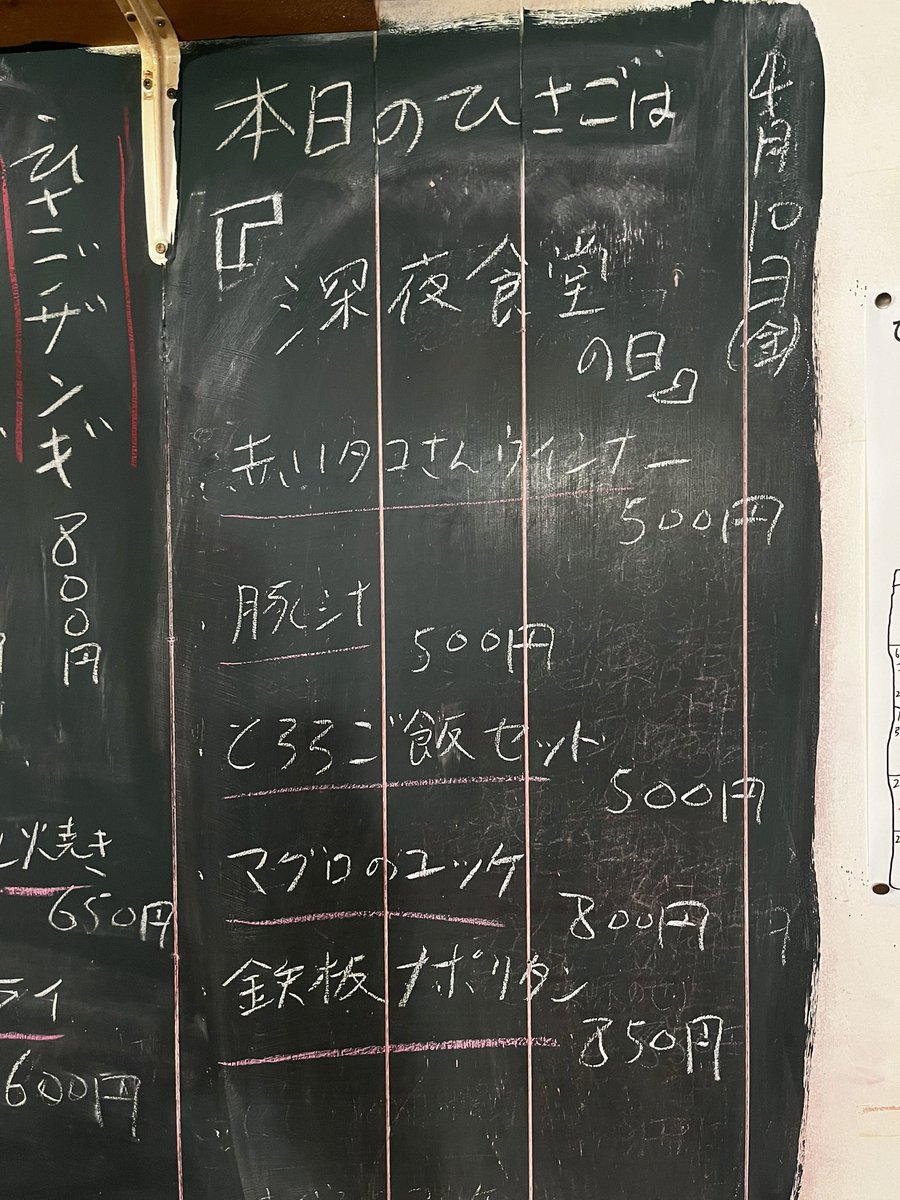 4月10日(金)
本日のひさごは
『深夜食堂
の日』
・赤いタコさんウインナー
500円
・豚汁
500円
・とろろご飯セット
500円
・マグロのユッケ
800円
・鉄板ナポリタン
850円
ひさごザンギ 800円
焼き
650円
ライ
600円